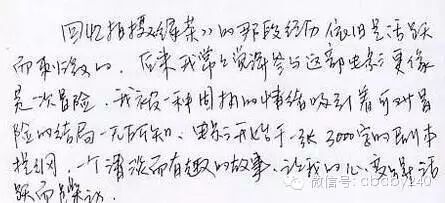 回忆拍摄《绿茶》的那段经历依旧是活跃
而刺激的，后来我常常觉得参与这部电影更像
是一次冒险，我被一种固执的情绪吸引着可对冒
险的结局一无所知。电影开始于一张3000字的剧本
提纲，一个清淡而有趣的故事，让我的心变得活
跃而躁动。
微信号: cbcby240